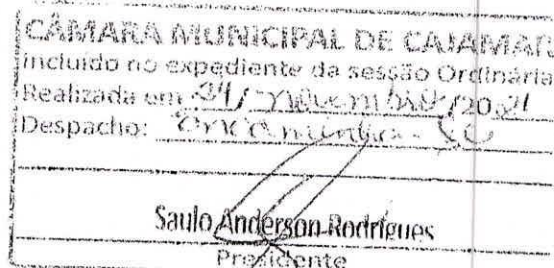 CÂMARA MUNICIPAL DE CAJAMAR
incluído no expediente da sessão Ordinária
Realizada em /novembro/2021
Despacho: Encaminha-se
Saulo Anderson Rodrigues
Presidente